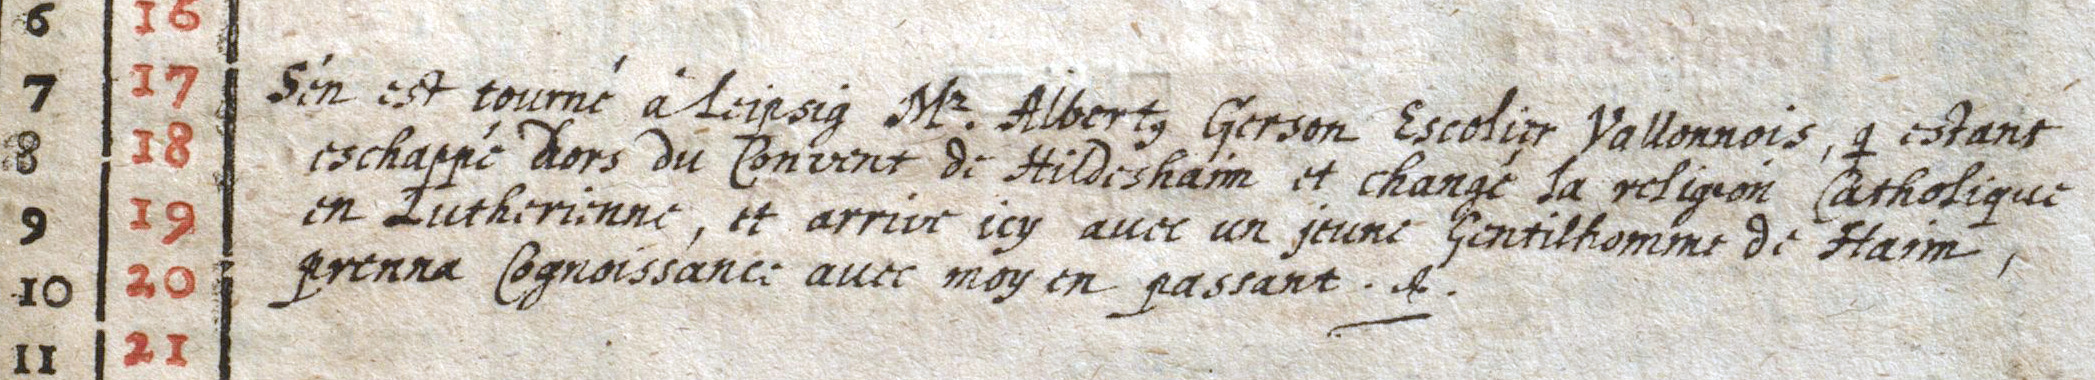 6 16
7 17 S'én est tourné á Leipsig Mr. Albert9 Gerson Escolier Vallonnois, q estant
8 18 eschappé dhors du Convent de Hildeshaim et changé la religion Catholique
9 19 en Lutherienne, et arrive icy avec un jeune Gentilhomme de Haim,
10 20 prenna Cognoissance avec moy en passant. A.
11 21